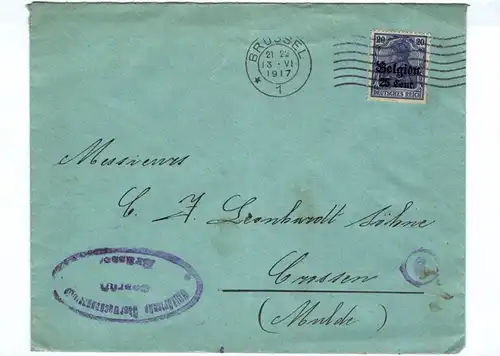 BRÜSSEL
21 22
13 - VI
1917
* 1
20 20
Belgien
25 Cent.
DEUTSCHES REICH
Messieurs
C. F. Leonhardt Söhne
Crossen
(Mulde)
Geprüft
Brüssel